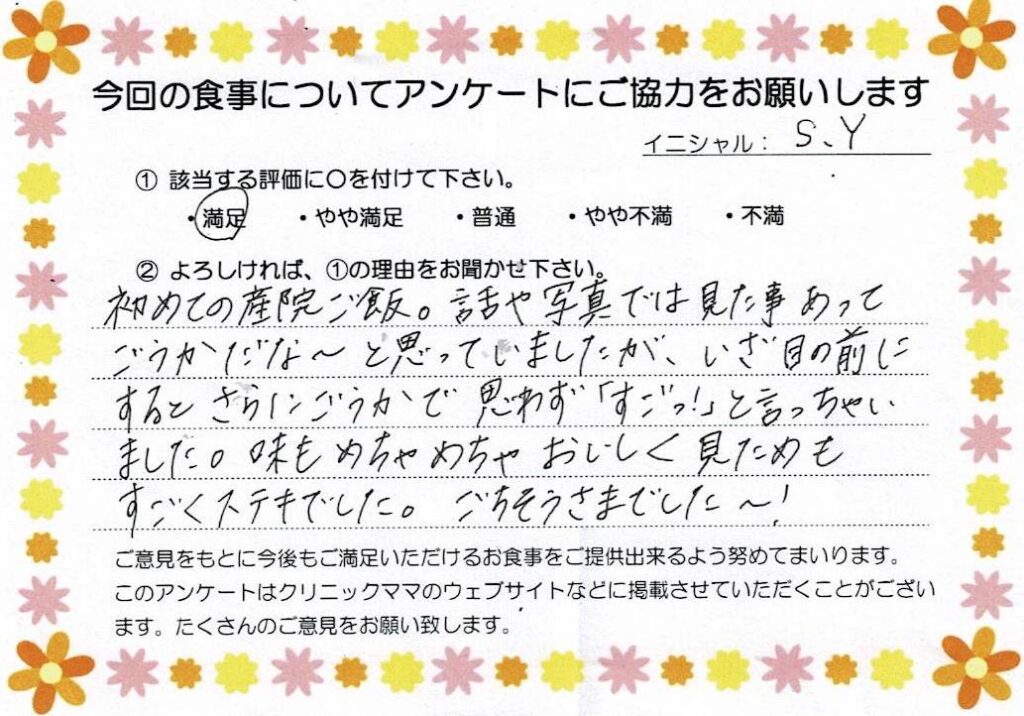 今回の食事についてアンケートにご協力をお願いします
イニシャル： S、Y
① 該当する評価に〇を付けて下さい。
・満足 ・やや満足 ・普通 ・やや不満 ・不満
② よろしければ、①の理由をお聞かせ下さい。
初めての産院ご飯。話や写真では見た事あって
ごうかだな～と思っていましたが、いざ目の前に
するとさらにごうかで思わず「すごっ！」と言っちゃい
ました。味もめちゃめちゃおいしく見ためも
すごくステキでした。ごちそうさまでした～！
ご意見をもとに今後もご満足いただけるお食事をご提供出来るよう努めてまいります。
このアンケートはクリニックママのウェブサイトなどに掲載させていただくことがござい
ます。たくさんのご意見をお願い致します。